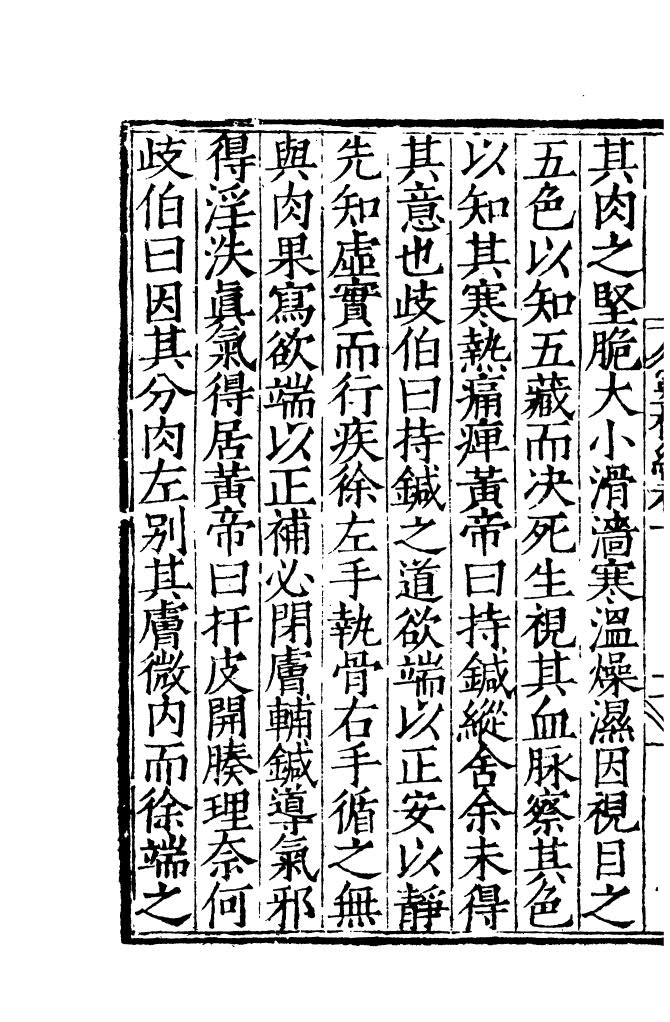 其肉之堅脆大小滑濇寒溫燥濕因視目之
五色以知五藏而决死生視其血脉察其色
以知其寒熱痛痺黃帝曰持鍼縱舍余未得
其意也歧伯曰持鍼之道欲端以正安以靜
先知虛實而行疾徐左手執骨右手循之無
與肉果寫欲端以正補必閉膚輔鍼導氣邪
得淫泆眞氣得居黃帝曰扞皮開腠理奈何
歧伯曰因其分肉左别其膚微内而徐端之